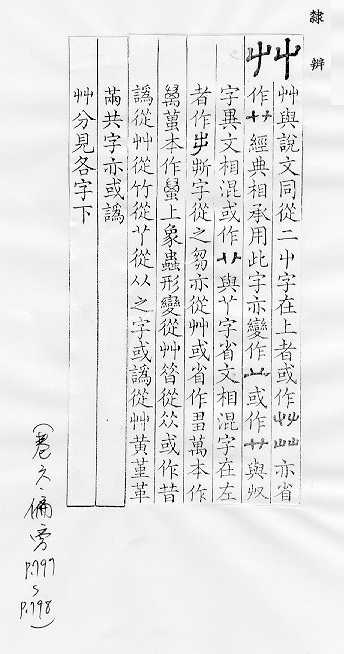 隸辨
艸
艸與說文同從二屮字在上者或作亦省
作艹經典相承用此字亦變作䒑或作卄與収
字異文相混或作與丫字省文相混字在左
者作字從之芻亦從艸或省作萬本作
本作蠆上象蟲形變從艸從或作昔
譌從艸從竹從丫從从之字或譌從艸黃堇革
㒼共字亦或譌
艸分見各字下
(卷六.偏旁
P.797
P.798)